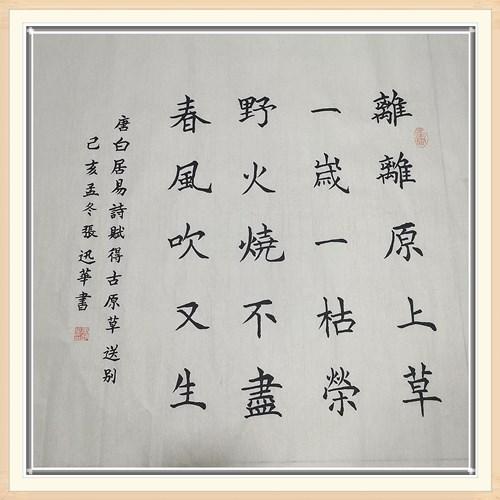 離離原上草
一嵗一枯榮
野火燒不盡
春風吹又生
唐白居易詩賦得古原草送别
己亥孟冬張迅華書